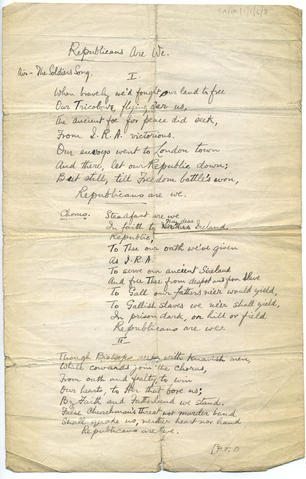 Republicans Are We.
Air - The Soldiers Song.
I.
When bravely we'd fought our land to free
Our Tricolour flying o'er us,
The ancient foe for peace did seek,
From I.R.A. victorious.
Our envoys went to London town
And there, let our Republic down;
But still, till Freedom battle's won,
Republicans are we.
Chorus. Steadfast are we
In faith to Ireland,
Republic,
To Thee our oath we've given
As I.R.A.
To serve our ancient Sireland
And free Thee from despot and slave
To Gall our fathers ne'er would yield,
To Gallish slaves we ne'er shall yield,
In prison dark, on hill or field
Republicans are we.
II
Though Bishops with Knavish men,
While cowards join the chorus,
From oath and fealty, to win
Our hearts, to that bore us;
By Faith and Fatherland we stand,
False Churchman's threat nor murder band
Shall quake us, neither heart nor hand
Republicans are we.